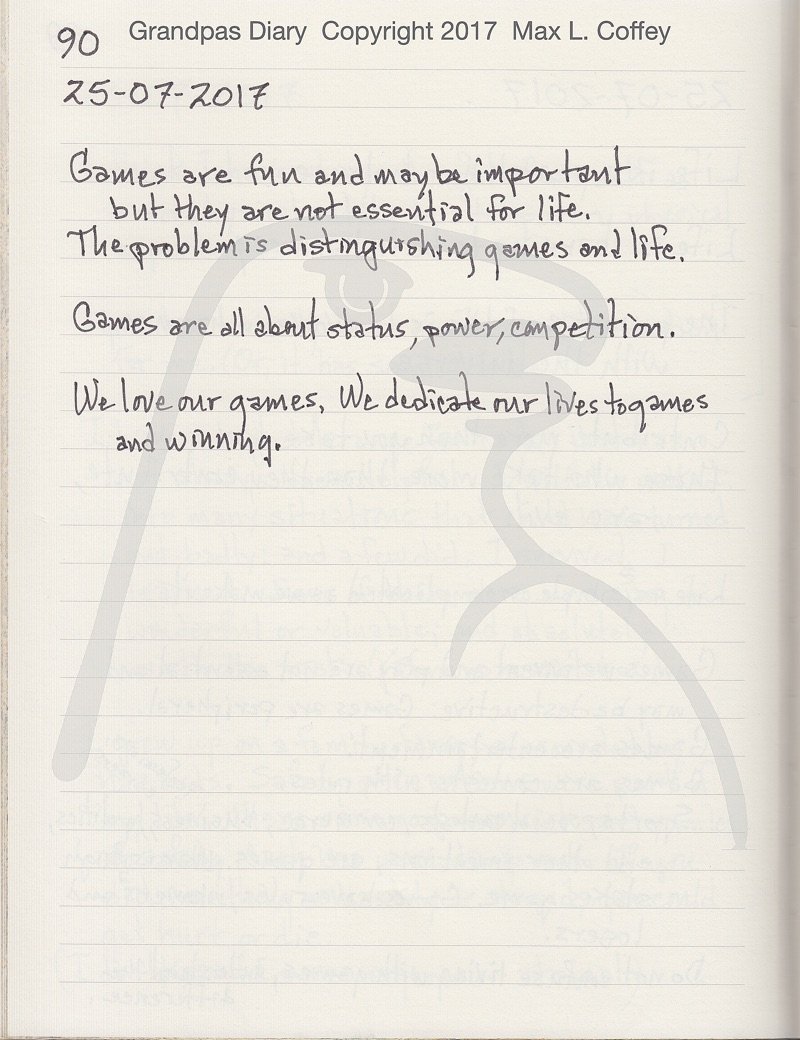 90 Grandpas Diary Copyright 2017 Max L. Coffey
25-07-2017
Games are fun and maybe important
but they are not essential for life.
The problem is distinguishing games and life.
Games are all about status, power, competition.
We love our games. We dedicate our lives to games
and winning.